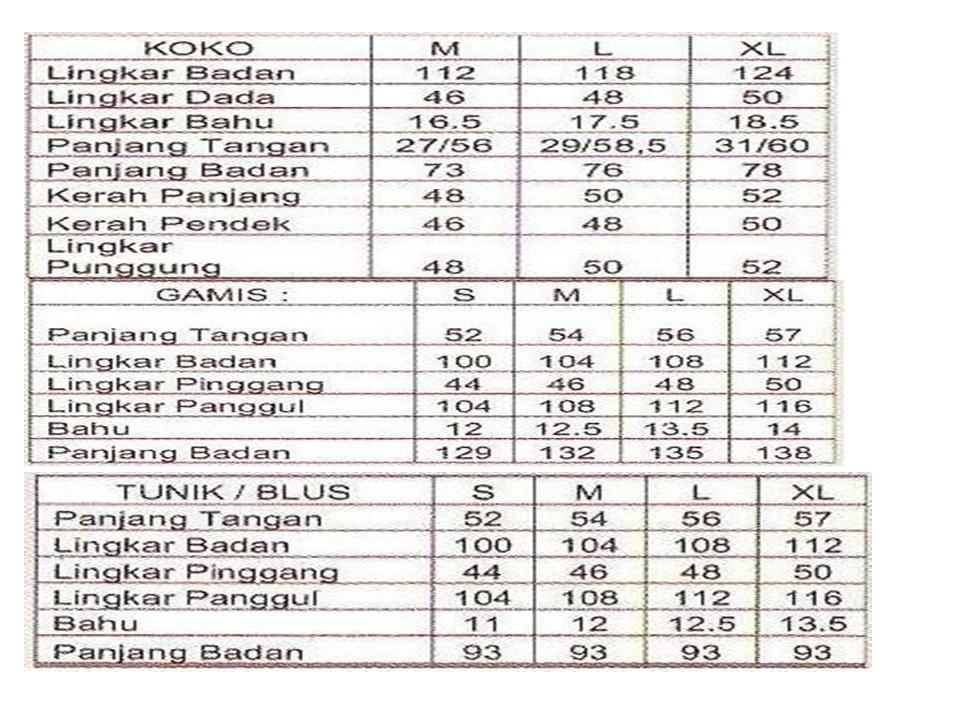 KOKO M L XL
Lingkar Badan 112 118 124
Lingkar Dada 46 48 50
Lingkar Bahu 16.5 17.5 18.5
Panjang Tangan 27/56 29/58,5 31/60
Panjang Badan 73 76 78
Kerah Panjang 48 50 52
Kerah Pendek 46 48 50
Lingkar
Punggung 48 50 52
GAMIS : S M L XL
Panjang Tangan 52 54 56 57
Lingkar Badan 100 104 108 112
Lingkar Pinggang 44 46 48 50
Lingkar Panggul 104 108 112 116
Bahu 12 12.5 13.5 14
Panjang Badan 129 132 135 138
TUNIK / BLUS S M L XL
Panjang Tangan 52 54 56 57
Lingkar Badan 100 104 108 112
Lingkar Pinggang 44 46 48 50
Lingkar Panggul 104 108 112 116
Bahu 11 12 12.5 13.5
Panjang Badan 93 93 93 93